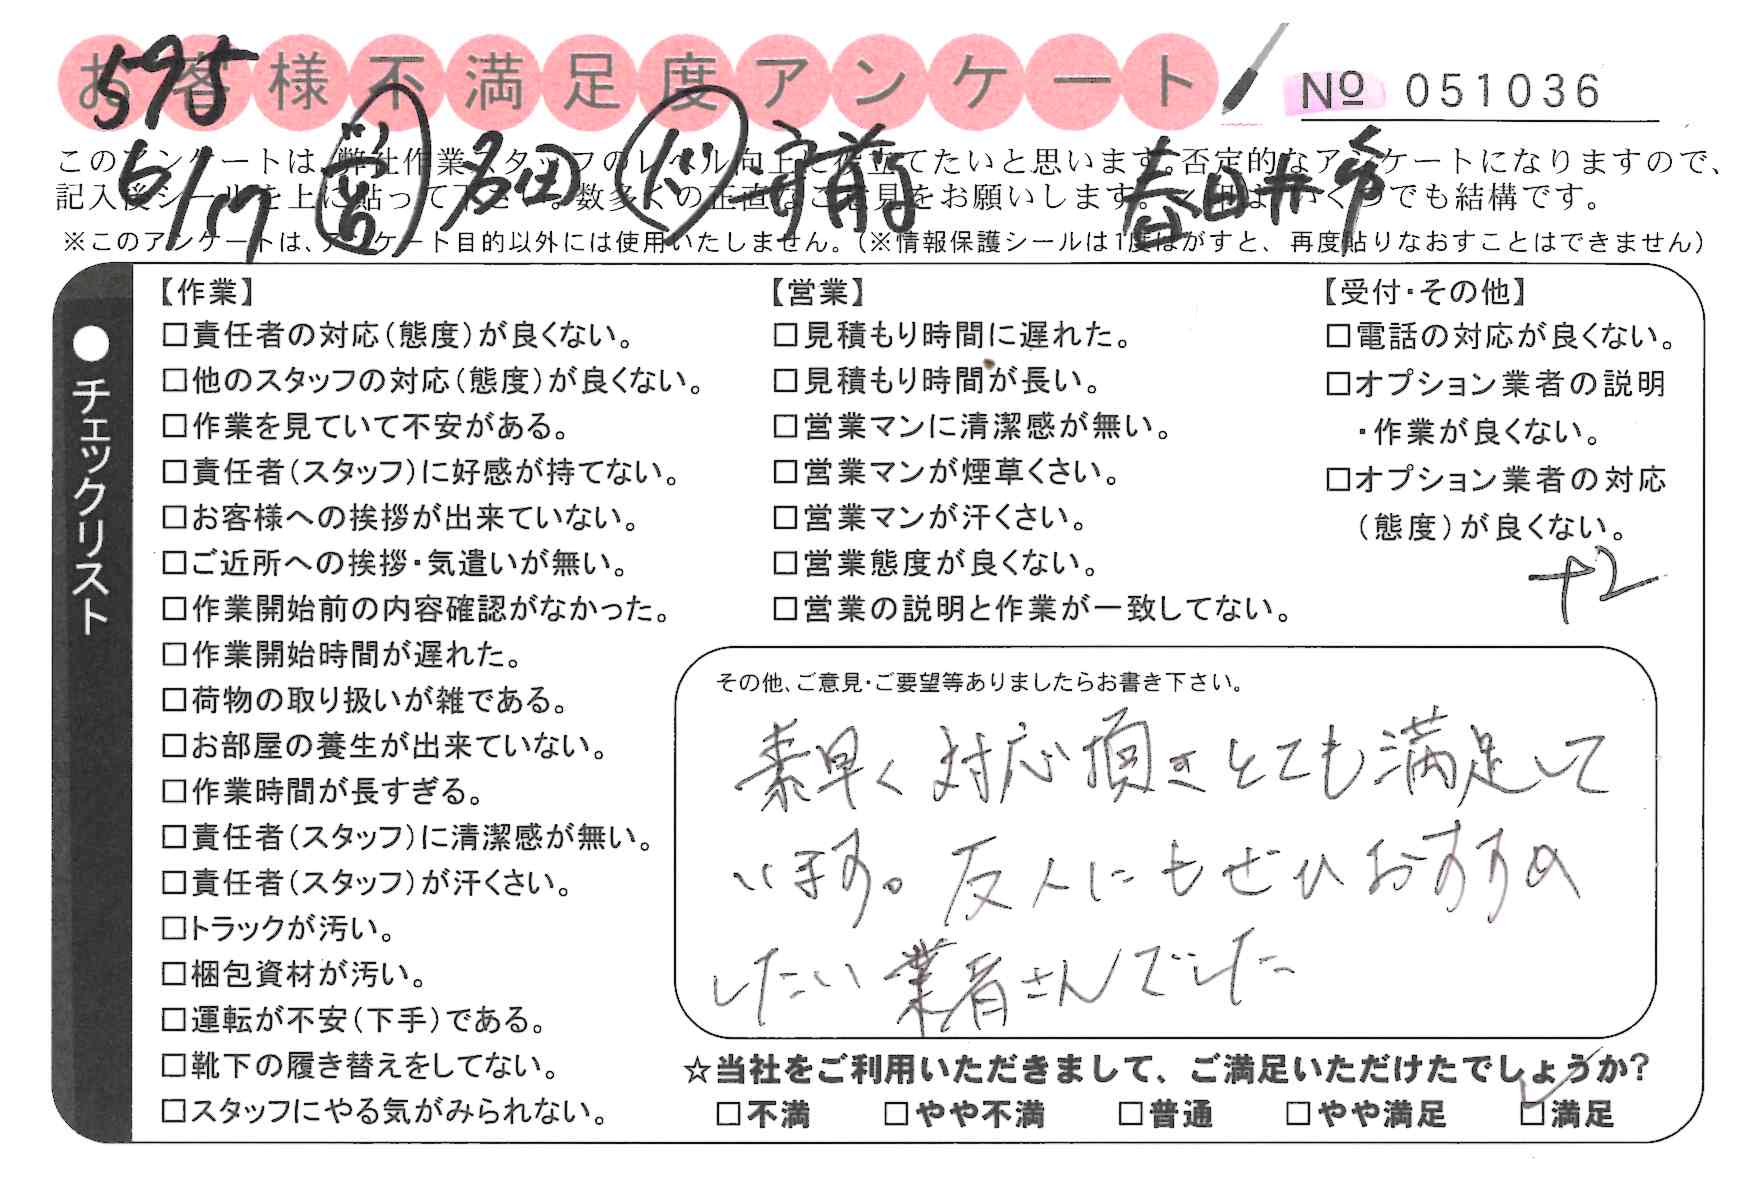 お客様不満足度アンケート
№ 051036
595
6/17 営 多田 バ 前 春日井市
このアンケートは、弊社作業スタッフのレベル向上に役立てたいと思います。否定的なアンケートになりますので、
記入後シールを上に貼って下さい。数多くの正直なご意見をお願いします。✓印はいくつでも結構です。
※このアンケートは、アンケート目的以外には使用いたしません。(※情報保護シールは1度はがすと、再度貼りなおすことはできません)
●チェックリスト
【作業】
□責任者の対応(態度)が良くない。
□他のスタッフの対応(態度)が良くない。
□作業を見ていて不安がある。
□責任者(スタッフ)に好感が持てない。
□お客様への挨拶が出来ていない。
□ご近所への挨拶・気遣いが無い。
□作業開始前の内容確認がなかった。
□作業開始時間が遅れた。
□荷物の取り扱いが雑である。
□お部屋の養生が出来ていない。
□作業時間が長すぎる。
□責任者(スタッフ)に清潔感が無い。
□責任者(スタッフ)が汗くさい。
□トラックが汚い。
□梱包資材が汚い。
□運転が不安(下手)である。
□靴下の履き替えをしてない。
□スタッフにやる気がみられない。
【営業】
□見積もり時間に遅れた。
□見積もり時間が長い。
□営業マンに清潔感が無い。
□営業マンが煙草くさい。
□営業マンが汗くさい。
□営業態度が良くない。
□営業の説明と作業が一致してない。
【受付・その他】
□電話の対応が良くない。
□オプション業者の説明
・作業が良くない。
□オプション業者の対応
(態度)が良くない。
+2
その他、ご意見・ご要望等ありましたらお書き下さい。
素早く対応頂きとても満足して
います。友人にもぜひおすすめ
したい業者さんでした
☆当社をご利用いただきまして、ご満足いただけたでしょうか?
□不満 □やや不満 □普通 □やや満足 ☑満足